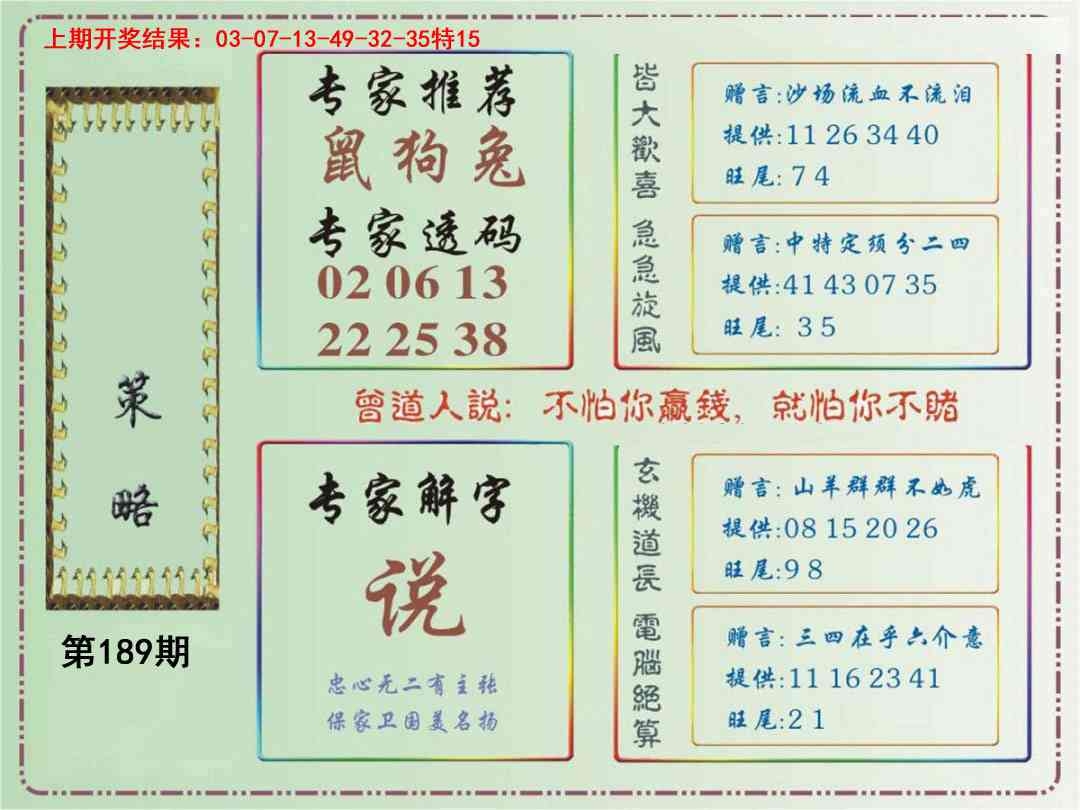 上期开奖结果：03-07-13-49-32-35特15
策略
第189期
专家推荐
鼠狗兔
专家透码
02 06 13
22 25 38
皆大歡喜
赠言:沙场流血不流泪
提供:11 26 34 40
旺尾: 7 4
急急旋風
赠言:中特定须分二四
提供:41 43 07 35
旺尾: 3 5
曾道人説: 不怕你贏錢, 就怕你不賭
专家解字
说
忠心无二有主张
保家卫国美名扬
玄機道長
赠言: 山羊群群不如虎
提供:08 15 20 26
旺尾:9 8
電腦絕算
赠言: 三四在乎六介意
提供:11 16 23 41
旺尾:2 1